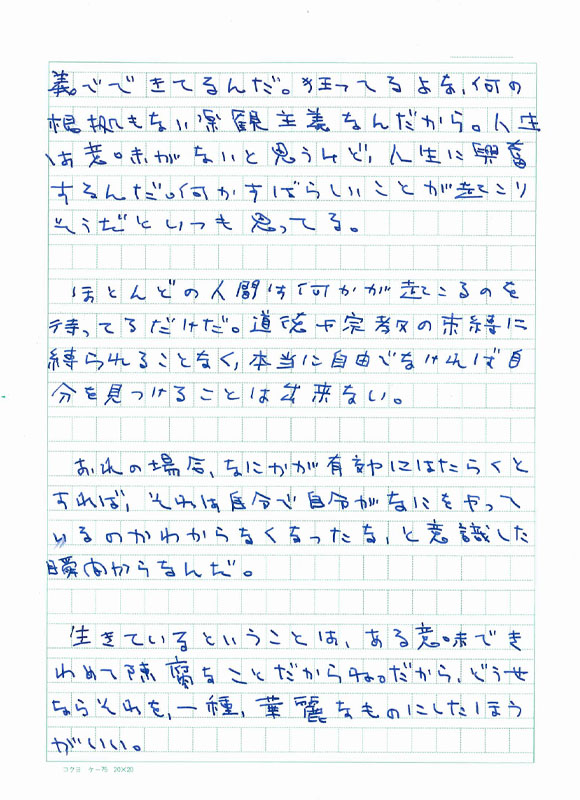 義でできてるんだ。狂ってるよな、何の
根拠もない楽観主義なんだから。人生
は意味がないと思うけど、人生に興奮
するんだ。何かすばらしいことが起こり
そうだといつも思ってる。
ほとんどの人間は何かが起こるのを
待ってるだけだ。道徳や宗教の束縛に
縛られることなく、本当に自由でなければ自
分を見つけることは出来ない。
おれの場合、なにかが有効にはたらくと
すれば、それは自分で自分がなにをやって
いるのかわからなくなったな、と意識した
瞬間からなんだ。
生きているということは、ある意味でき
わめて陳腐なことだからね。だから、どうせ
ならそれを、一種、華麗なものにしたほう
がいい。
コクヨ ケー75 20×20